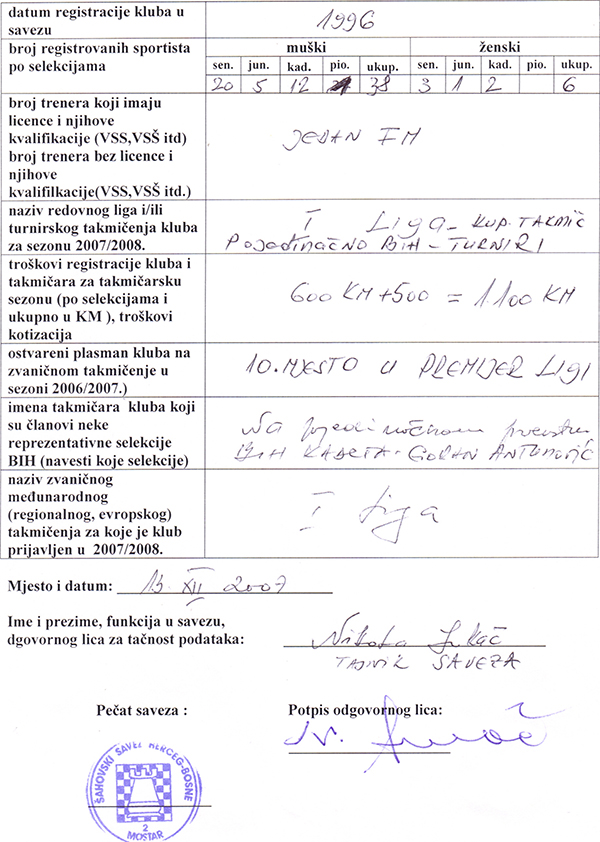 datum registracije kluba u
savezu
1996
broj registrovanih sportista
po selekcijama
muški ženski
sen. jun. kad. pio. ukup. sen. jun. kad. ukup.
20 5 12 38 3 1 2 6
broj trenera koji imaju
licence i njihove
kvalifikacije (VSS,VSŠ itd)
broj trenera bez licence i
njihove
kvalifilkacije(VSS,VSŠ itd.)
JEDAN FM
naziv redovnog liga i/ili
turnirskog takmičenja kluba
za sezonu 2007/2008.
I LIGA - KUP. TAKMIČ
POJEDINAČNO BIH - TURNIRI
troškovi registracije kluba i
takmičara za takmičarsku
sezonu (po selekcijama i
ukupno u KM ), troškovi
kotizacija
600 KM + 500 = 1.100 KM
ostvareni plasman kluba na
zvaničnom takmičenje u
sezoni 2006/2007.)
10. MJESTO U PREMIJER LIGI
imena takmičara kluba koji
su članovi neke
reprezentativne selekcije
BIH (navesti koje selekcije)
Na pojedinačnom
BIH KADETA - GORAN ANTUNOVIĆ
naziv zvaničnog
međunarodnog
(regionalnog, evropskog)
takmičenja za koje je klub
prijavljen u 2007/2008.
I liga
Mjesto i datum: 13. XII 2007
Ime i prezime, funkcija u savezu,
dgovornog lica za tačnost podataka:
Nikola
TAJNIK SAVEZA
Pečat saveza : Potpis odgovornog lica:
N.
ŠAHOVSKI SAVEZ HERCEG-BOSNE
2
MOSTAR